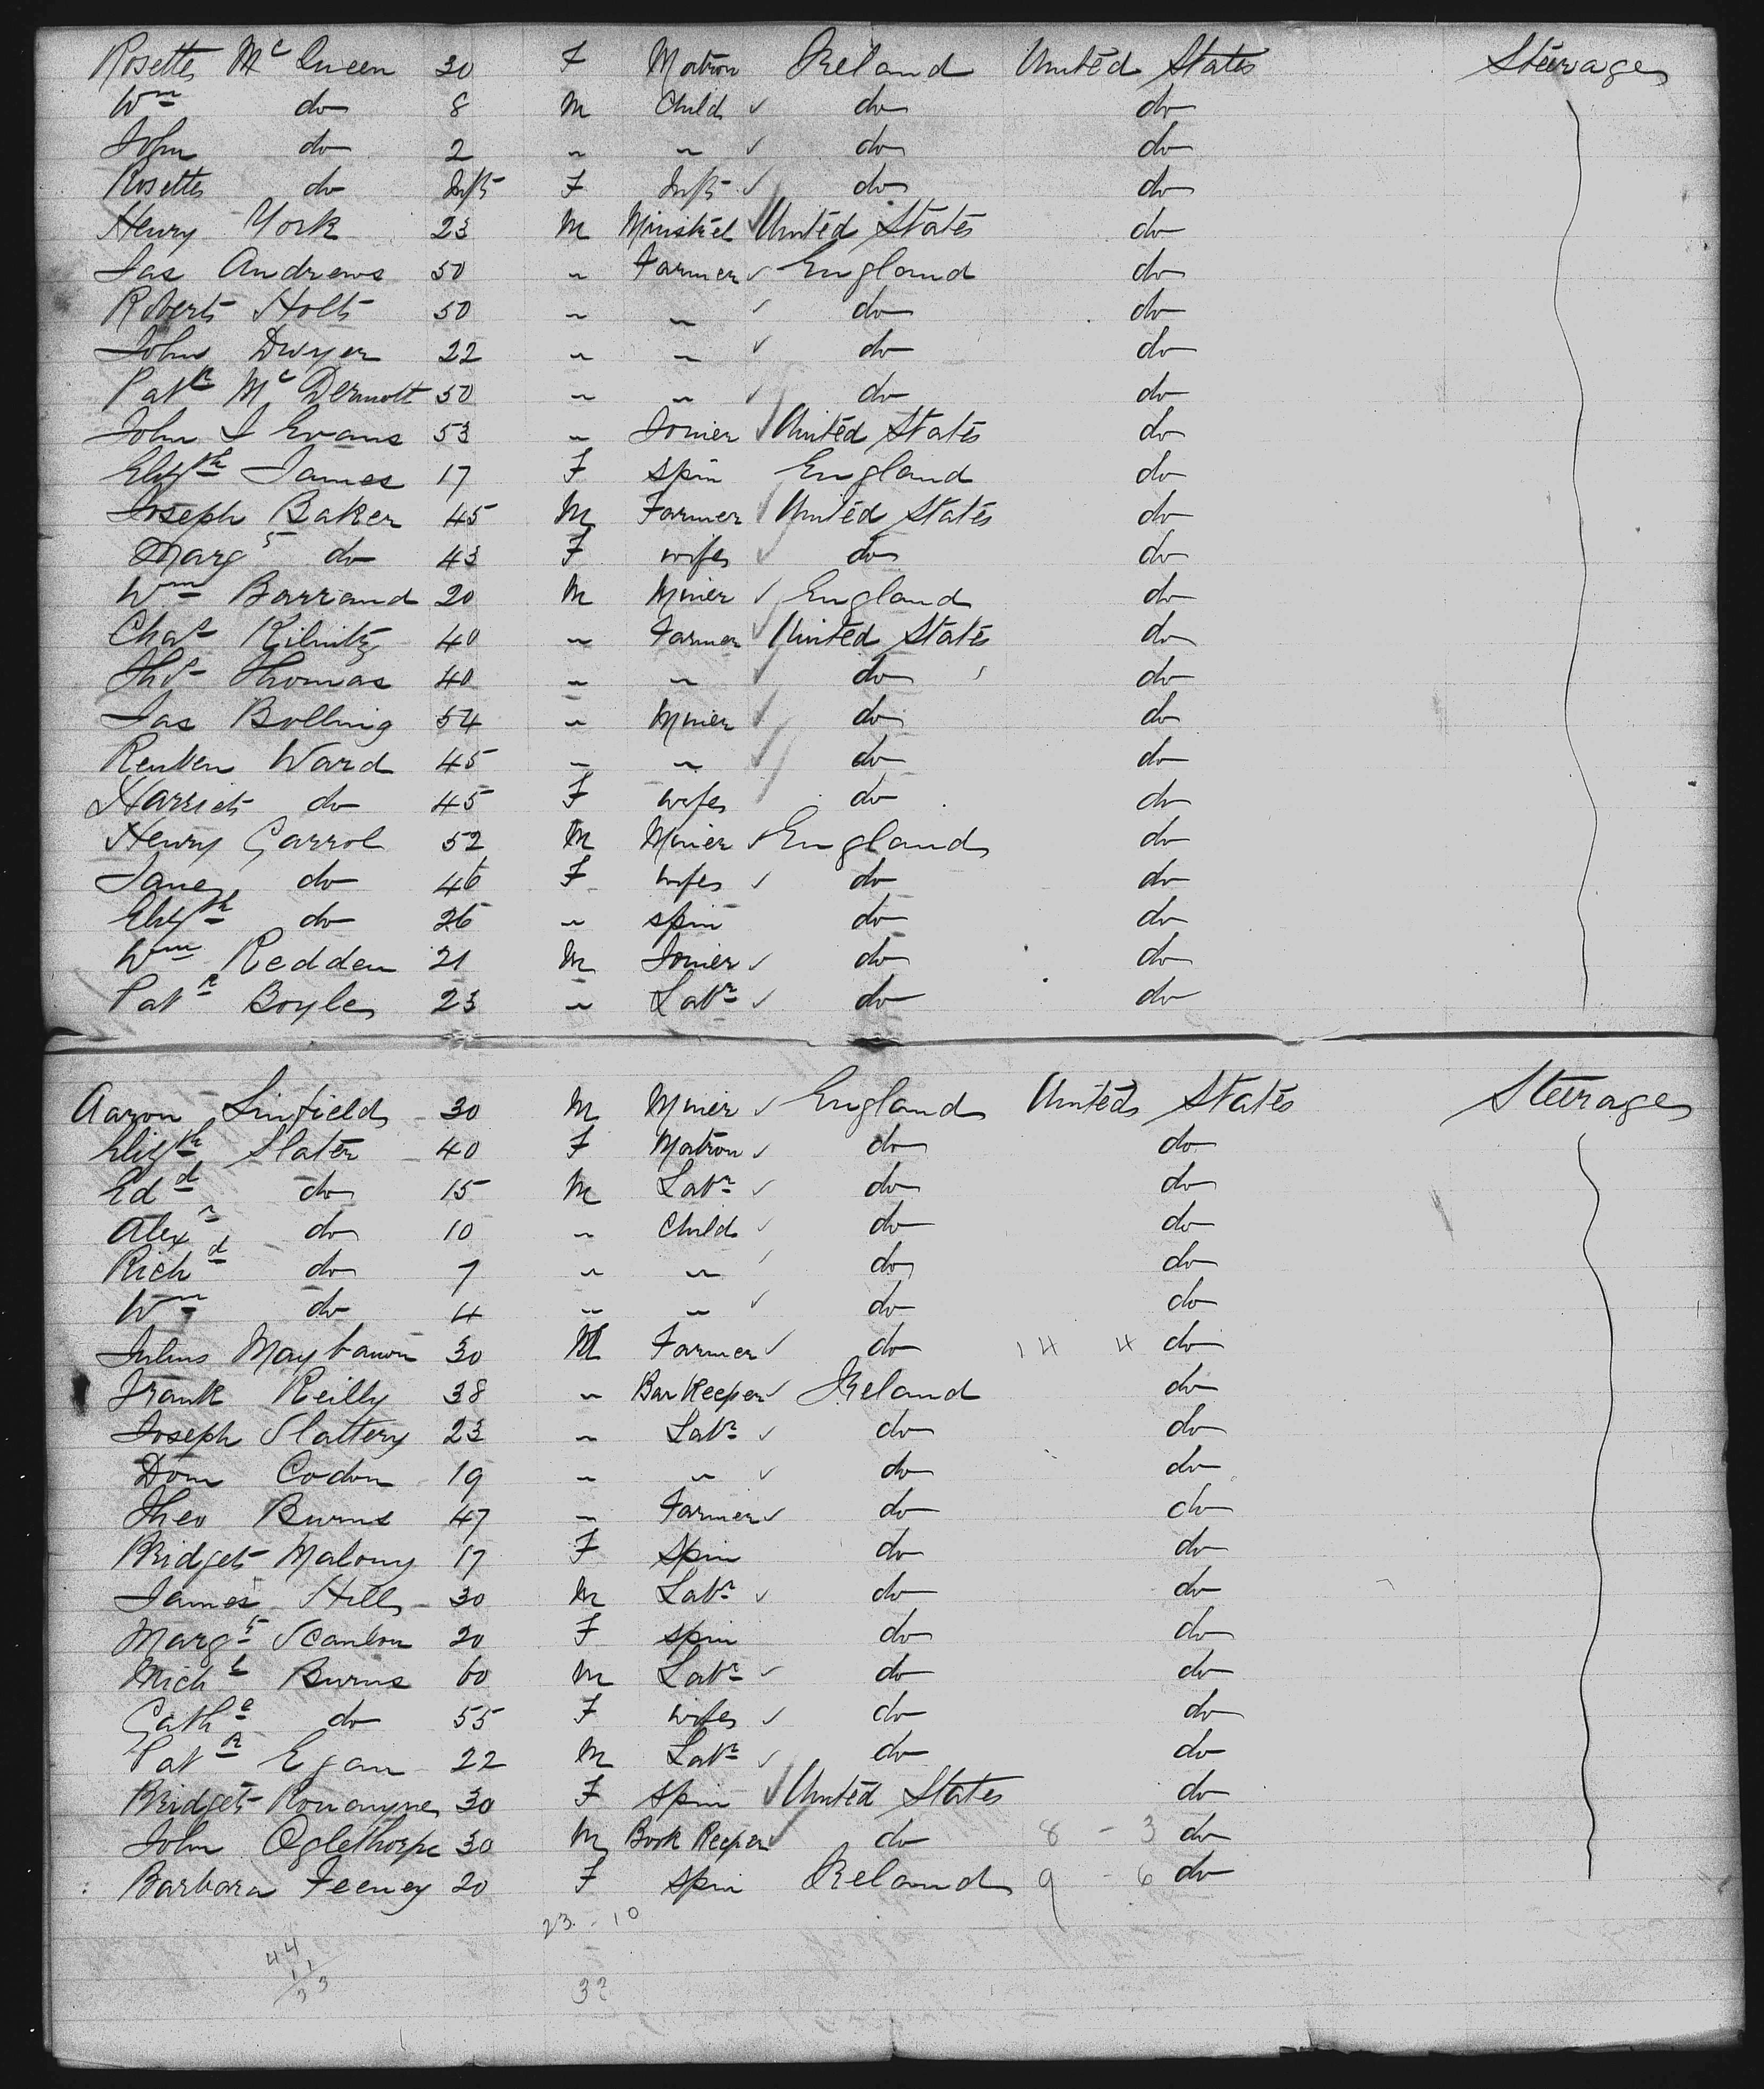 Rosette McQueen 30 F Matron Ireland United States Steerage
Wm do 8 M Child do do
John do 2 " " do do
Rosette do Inft F Inft do do
Henry York 23 M Minstrel United States do
Jas Andrews 50 " Farmer England do
Robert Holt 50 " " do do
John Dwyer 22 " " do do
Patk McDermott 50 " " do do
John I Evans 53 " Joiner United States do
Elizth James 17 F Spin England do
Joseph Baker 45 M Farmer United States do
Margt do 43 F wife do do
Wm Barrand 20 M Miner England do
Chas Kibnitz 40 " Farmer United States do
Thos Thomas 40 " " do do
Jas Bolling 54 " Miner do do
Reuben Ward 45 " " do do
Harriet do 45 F wife do do
Henry Carrol 52 M Miner England do
Jane do 46 F wife do do
Elizth do 26 " spin do do
Wm Redden 21 M Joiner do do
Patk Boyle 23 " Labr do do
Aaron Linfield 30 M Miner England United States Steerage
Elizth Slater 40 F Matron do do
Edd do 15 M Labr do do
Alexr do 10 " Child do do
Richd do 7 " " do do
Wm do 4 " " do do
Julius Maybaum 30 M Farmer do 14 4 do
Frank Reilly 38 " Bar Keeper Ireland do
Joseph Slattery 23 " Labr do do
Dom Codon 19 " " do do
Theo Burns 47 " Farmer do do
Bridget Malony 17 F Spin do do
James Hill 30 M Labr do do
Margt Scanlon 20 F spin do do
Michl Burns 60 M Labr do do
Cathe do 55 F wife do do
Patk Egan 22 M Labr do do
Bridget Ronayne 30 F Spin United States do
John Oglethorpe 30 M Book Keeper do 8 - 3 do
Barbara Feeney 20 F Spin Ireland 9 - 6 do
23 - 10
44
11
33